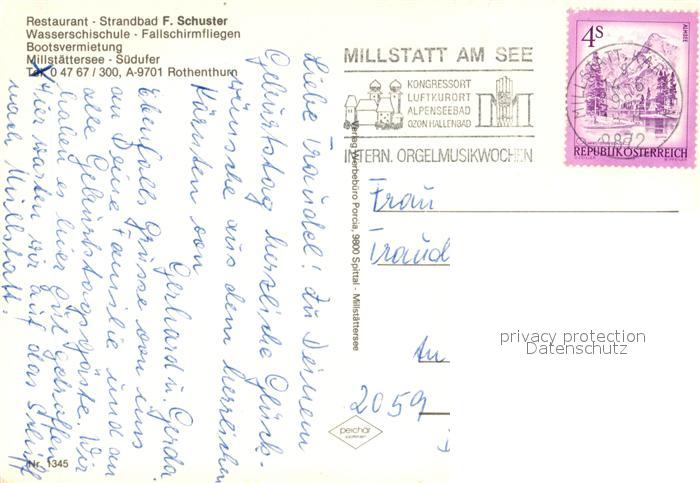 Restaurant · Strandbad F. Schuster
Wasserschischule · Fallschirmfliegen
Bootsvermietung
Millstättersee · Südufer
Tel. 0 47 67 / 300, A-9701 Rothenthurn
Liebe Traudel! Zu Deinem
Geburtstag herzliche Glück-
wünsche aus dem herrlichen
Kärnten von
Gerhard u. Gerda.
Ebenfalls Grüsse von uns
an Deine Familie und an
alle Geburtstagsgäste. Wir
haben es hier gut getroffen
Hier warten wir auf das Schiff
nach Millstatt.
Nr. 1345
Verlag Werbebüro Porcia, 9800 Spittal - Millstättersee
MILLSTATT AM SEE
KONGRESSORT
LUFTKURORT
ALPENSEEBAD
OZON HALLENBAD
INTERN. ORGELMUSIKWOCHEN
MILLSTATT, KÄRNTEN
9872
4S
ALMSEE
REPUBLIK ÖSTERREICH
Frau
Traud
An
2059
peichär
privacy protection
Datenschutz